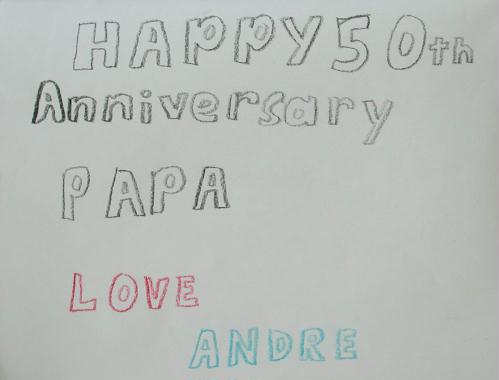 HAPPY 50th
Anniversary
PAPA
LOVE
ANDRE